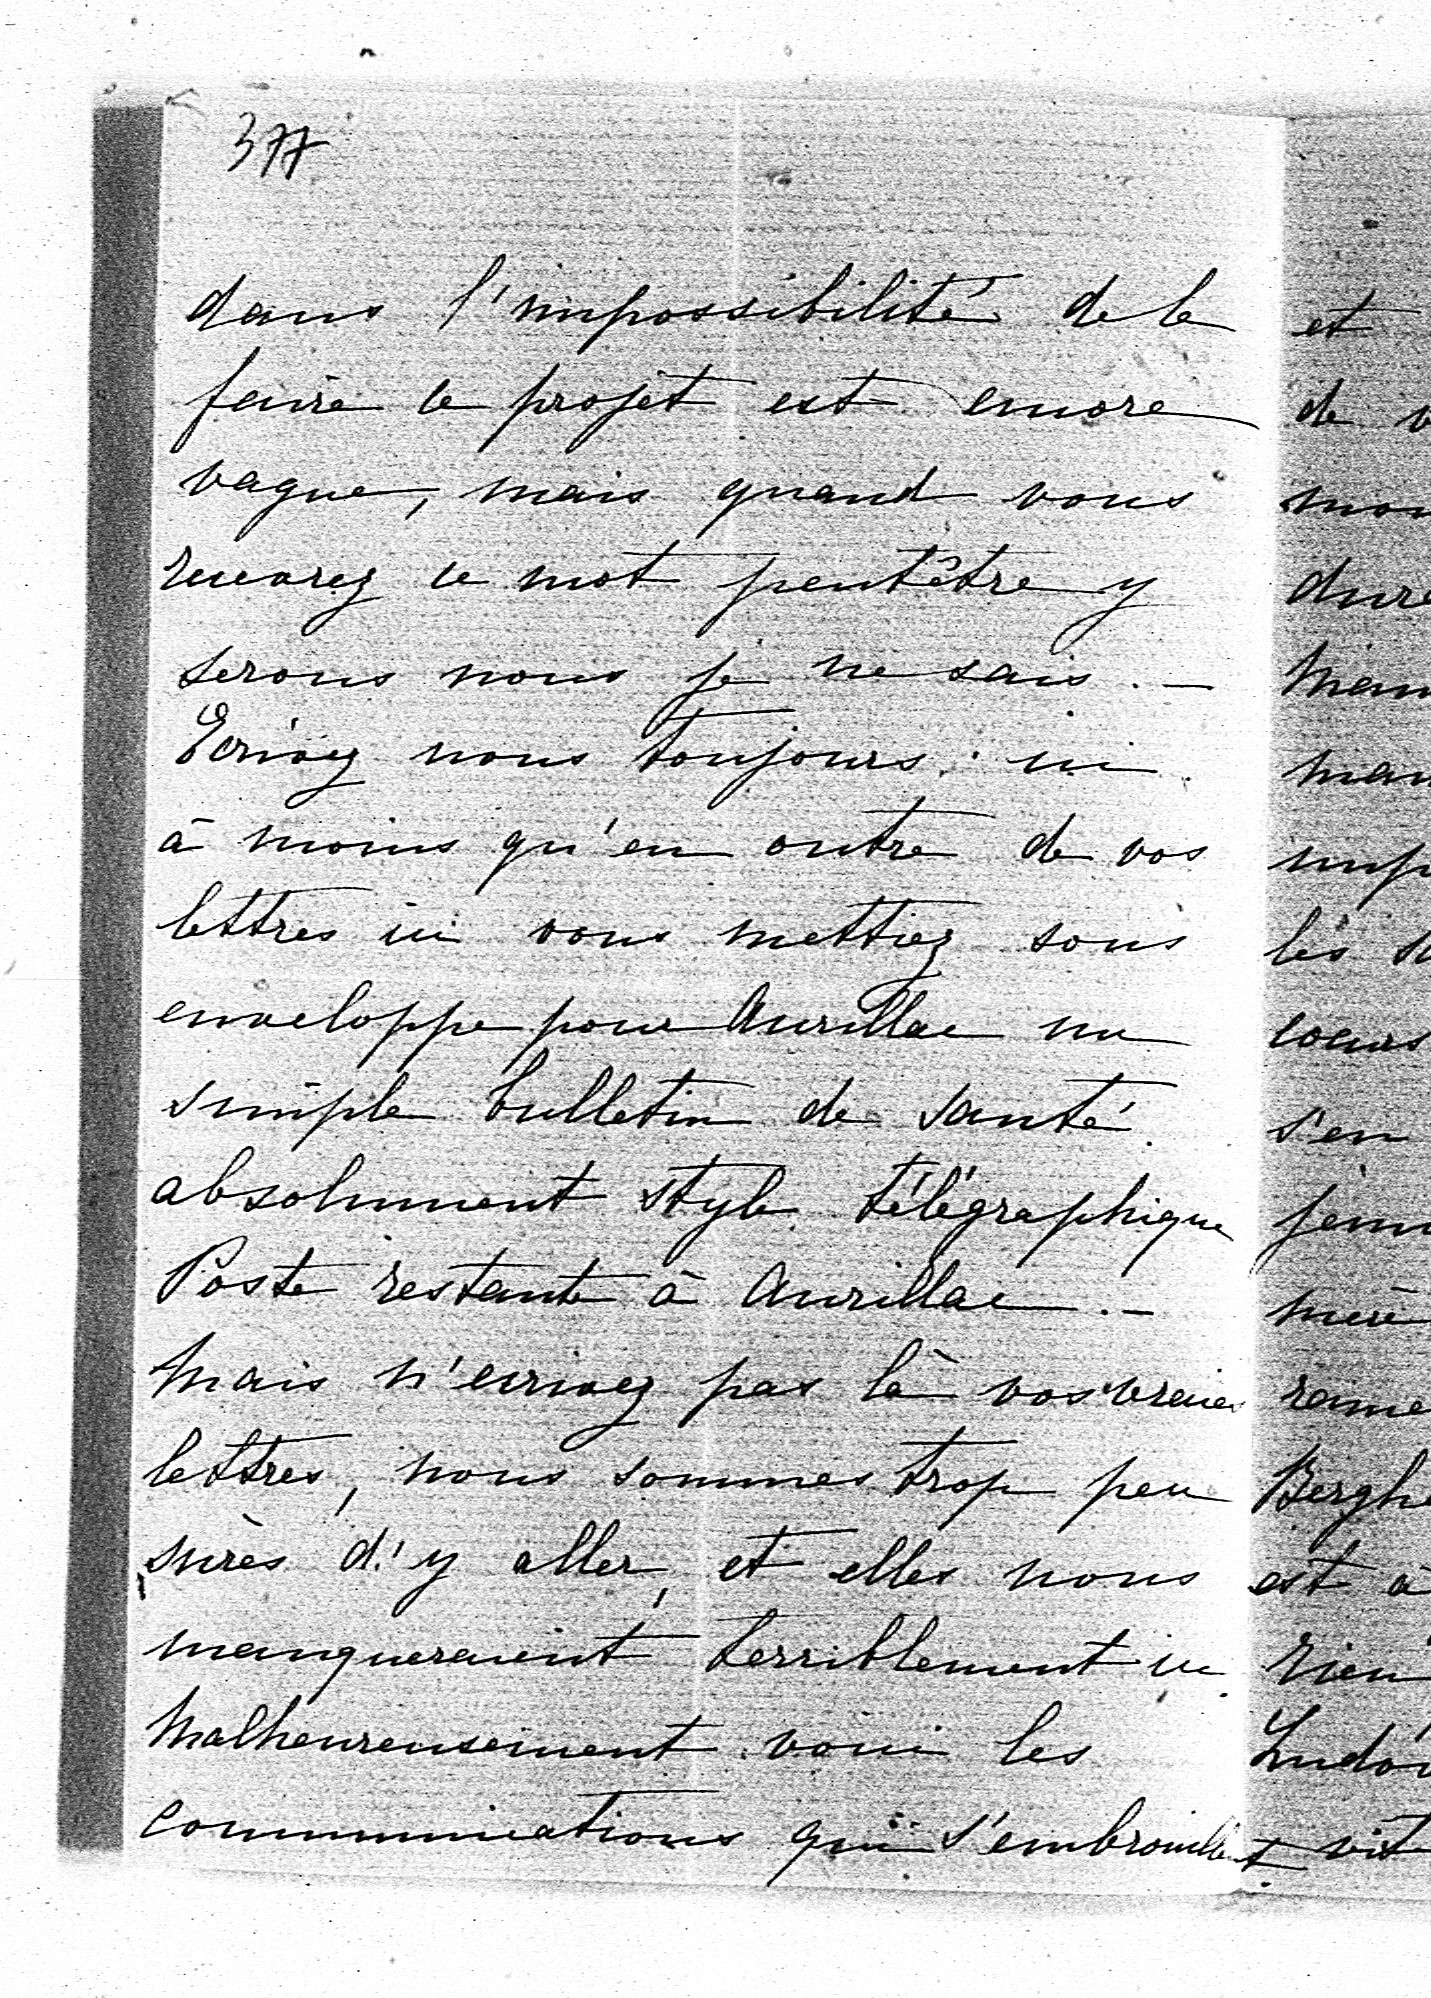 377
dans l'impossibilité de le
faire ce projet est encore
vague, mais quand vous
recevrez ce mot peutêtre y
serons nous je ne sais. —
Ecrivez nous toujours ici
à moins qu'en outre de vos
lettres ici vous mettiez sous
enveloppe pour Aurillac un
simple bulletin de santé
absolument style télégraphique
Poste restante à Aurillac. —
Mais n'ecrivez pas là vos vraies
lettres, nous sommes trop peu
sûres d'y aller, et elles nous
manqueraient terriblement ici.
Malheureusement voici les
communications qui s'embrouillent
et
de
est à
vite